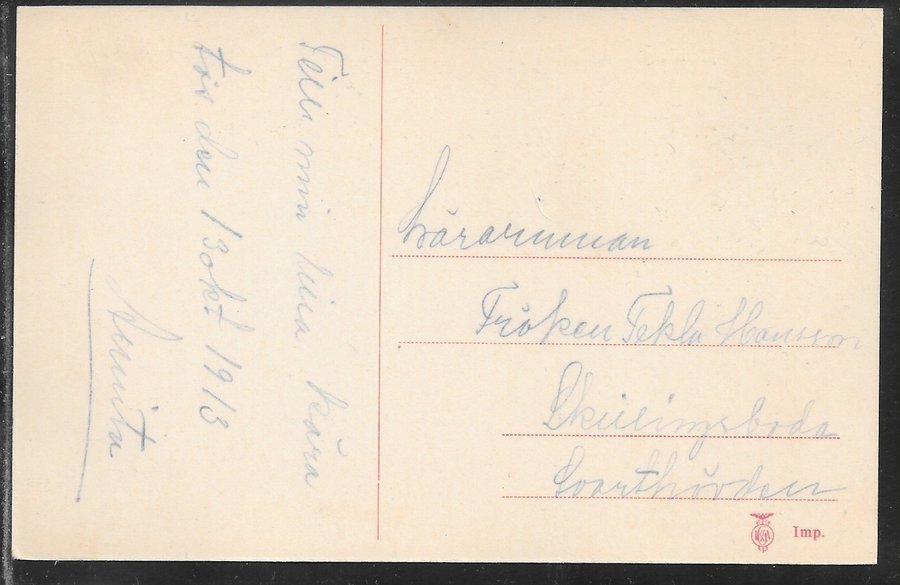 Till min lilla kära
förs den 13 okt 1913
Anita
Lärarinnan
Fröken Tekla Hansson
Skillingsboda
Svarthörden
Imp.